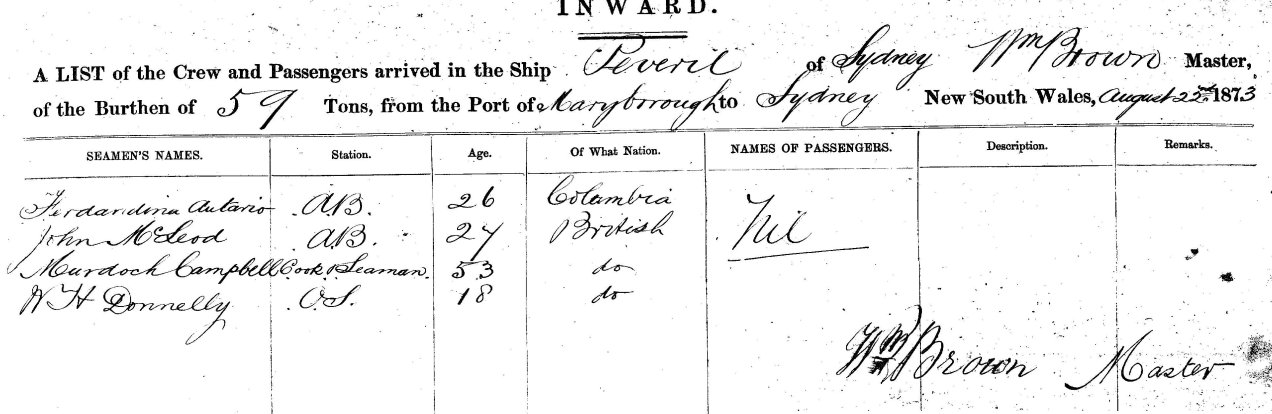 INWARD.
A LIST of the Crew and Passengers arrived in the Ship Peveril of Sydney Wm Brown Master,
of the Burthen of 59 Tons, from the Port of Maryborough to Sydney New South Wales, August 22nd 1873
SEAMEN'S NAMES. Station. Age. Of What Nation. NAMES OF PASSENGERS. Description. Remarks.
Ferdandina Antario A.B. 26 Columbia Nil
John McLeod A.B. 27 British
Murdoch Campbell Cook & Seaman. 53 do
W H Donnelly O.S. 18 do
Wm Brown Master